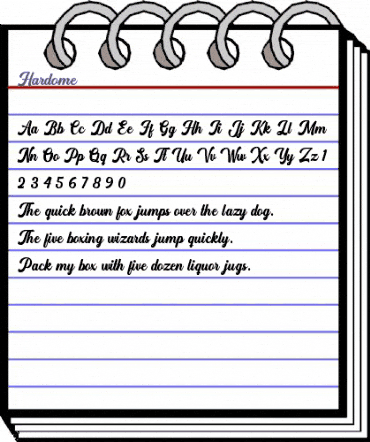 Hardome
Aa Bb Cc Dd Ee Ff Gg Hh Ii Jj Kk Ll Mm
Nn Oo Pp Qq Rr Ss Tt Uu Vv Ww Xx Yy Zz 1
2 3 4 5 6 7 8 9 0
The quick brown fox jumps over the lazy dog.
The five boxing wizards jump quickly.
Pack my box with five dozen liquor jugs.